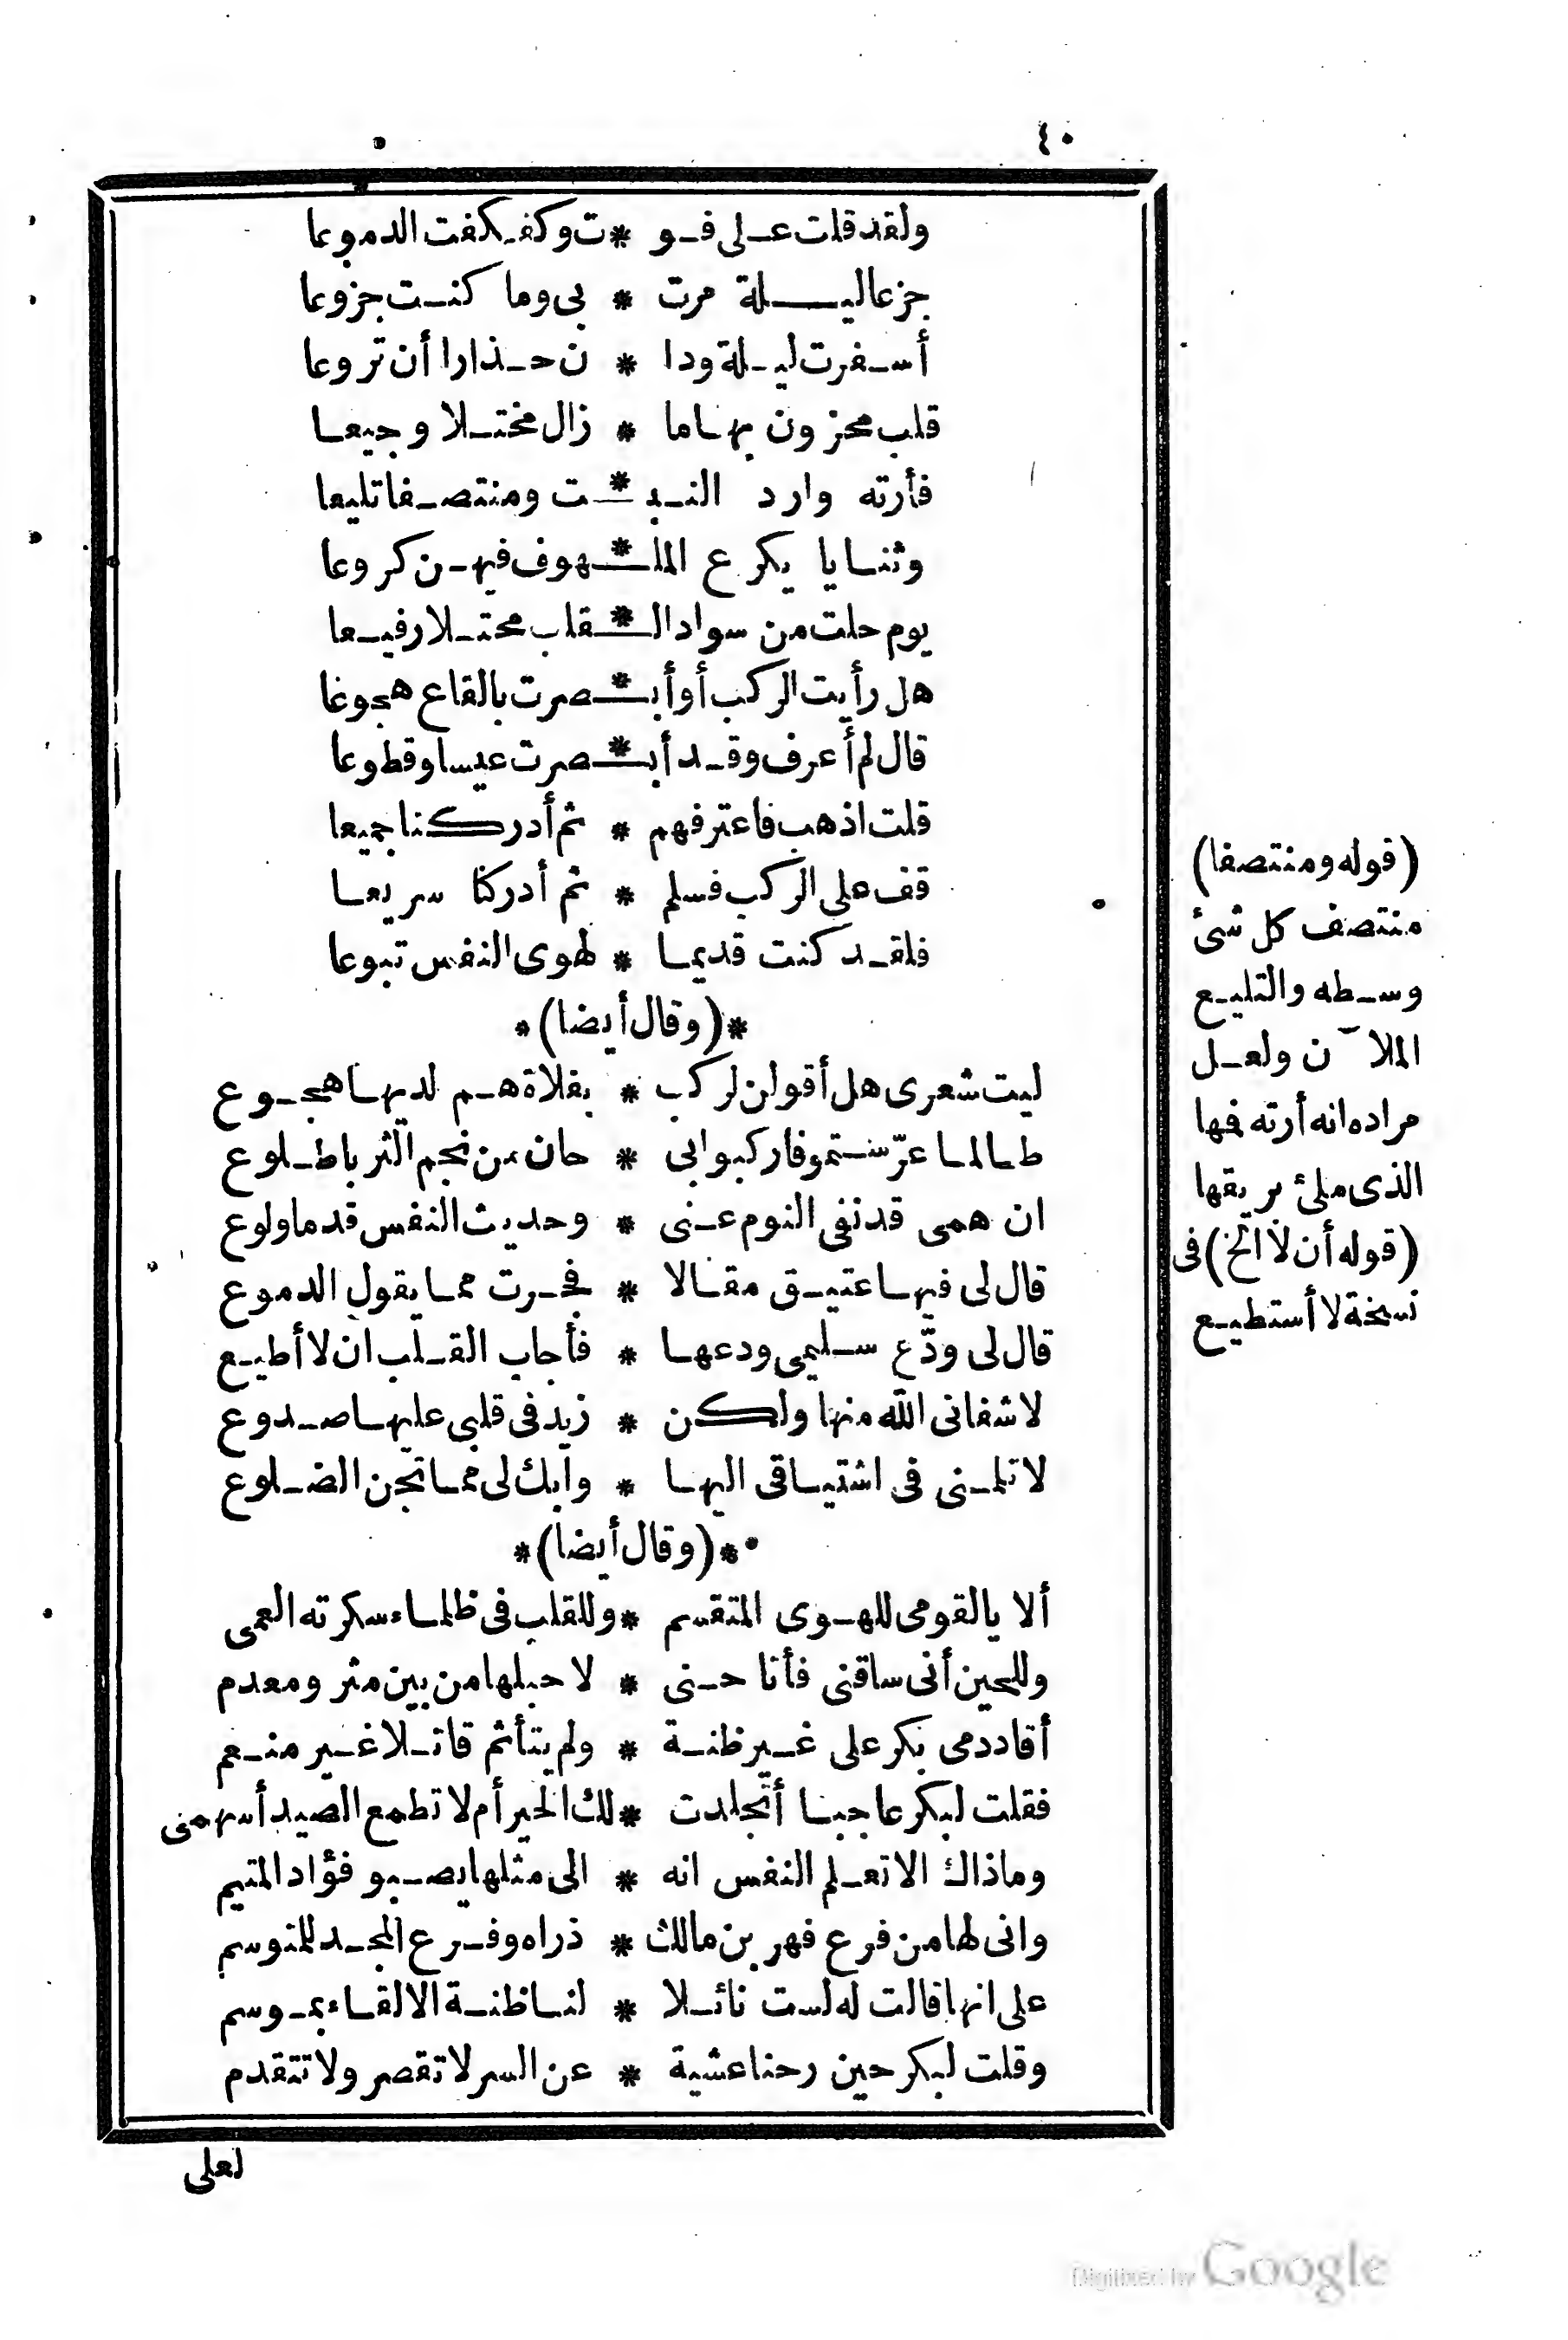 ٤٠
ولقد قلت على فو * ت وكفكفت الدموعا
جزعا ليلة مرت * بى وما كنت جزوعا
أسفرت ليلة ودا * ن حذارا أن تروعا
قلب محزون بها ما * زال مختلا وجيعا
فأرته وارد النبـ * ـت ومنتصفا تليعا
وثنايا يكرع الملـ * ـهوف فيهن كروعا
يوم حلت من سواد الـ * ـقلب محتلا رفيعا
هل رأيت الركب أو أبـ * ـصرت بالقاع هجوعا
قال لم أعرف وقد أبـ * ـصرت عيسا وقطوعا
قلت اذهب فاعترفهم * ثم أدركنا جميعا
قف على الركب فسلم * ثم أدركنا سريعا
فلقد كنت قديما * لهوى النفس تبوعا
*(وقال أيضا)*
ليت شعرى هل أقولن لركب * بفلاة هم لديها هجوع
طالما عرّستمو فاركبوا بى * حان من نجم الثريا طلوع
ان همى قد نفى النوم عنى * وحديث النفس قدما ولوع
قال لى فيها عتيق مقالا * فجرت مما يقول الدموع
قال لى ودّع سليمى ودعها * فأجاب القلب ان لا أطيع
لا شفانى الله منها ولكن * زيد فى قلبى عليها صدوع
لا تلمنى فى اشتياقى اليها * وابك لى مما تجن الضلوع
*(وقال أيضا)*
ألا يا لقومى للهوى المتقسم * وللقلب فى ظلماء سكرته العمى
وللحين أنى ساقنى فأتاحنى * لاحبلها من بين مثر ومعدم
أقاد دمى بكر على غير ظنة * ولم يتأثم قاتلا غير منعم
فقلت لبكر عاجبا أتجلدت * لك الخير أم لا تطمع الصيد أسهمى
وماذاك الا تعلم النفس انه * الى مثلها يصبو فؤاد المتيم
وانى لها من فرع فهر بن مالك * ذراه وفرع المجد للمتوسم
على انها قالت له لست نائلا * لنا ظنة الا لقاء بموسم
وقلت لبكر حين رحنا عشية * عن السر لا تقصر ولا تتقدم
لعلى
(قوله ومنتصفا)
منتصف كل شئ
وسطه والتليع
الملآن ولعل
مراده انه أرته فها
الذى ملئ بريقها
(قوله أن لا الخ) فى
نسخة لا أستطيع
Digitized by Google